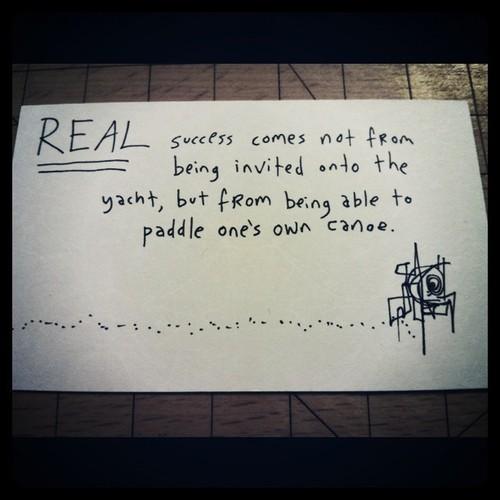 REAL success comes not from
being invited onto the
yacht, but from being able to
paddle one's own canoe.